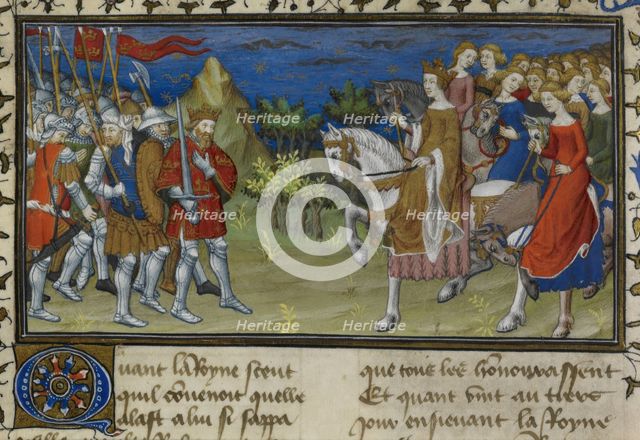 Quant la Royne sceut
quil conuenoit quelle
alast a lui si sappa
que tous les honnourassent
Et quant vint au tiers
Jour ensieuant la Royne
Heritage
Heritage
Heritage
Heritage
Heritage
Heritage
Heritage
Heritage
Heritage